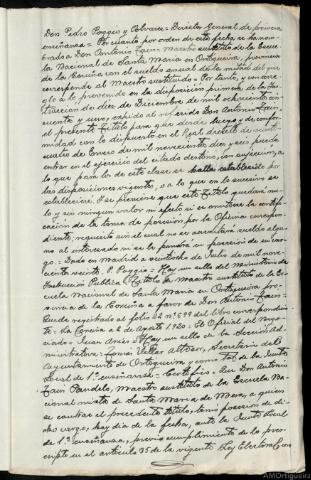 Don Pedro Poggio y Alvarez = Director General de primera
enseñanza = Por cuanto por orden de esta fecha, se ha nom-
brado a Don Antonio Fain Maestro sustituto de la Escue-
la Nacional de Santa Maria en Ortigueira, provincia
de la Coruña con el sueldo anual de la mitad del que
corresponde al Maestro sustituido = Por tanto, y con arre-
glo a lo prevenido en la disposición primera de la Ins-
trucción de diez de Diciembre de mil ochocientos cin-
cuenta y uno, expido al referido Don Antonio Fain,
el presente Título para que desde luego y de confor-
midad con lo dispuesto en el Real decreto de veinti-
de Enero de mil novecientos diez y seis pueda
entrar en el ejercicio del citado destino, con sujecion, a
lo que para los de esta clase, se halla establecido por
las disposiciones vigentes, o a lo que en lo sucesivo se
estableciere. = Se previene que este Título quedará nu-
lo y sin ningun valor ni efecto si se omitiere la certifi-
cación de la toma de posesión por la Oficina correspon-
diente, requisito sin el cual no se acreditará sueldo algu-
no al interesado ni se le pondrá en posesión de su car-
go. = Dado en Madrid a veintiocho de Julio de mil nove-
cientos veinte. P. Poggio = Hay un sello del ministerio de
Instrucción Publica = Titulo de Maestro sustituto de la Es-
cuela Nacional de Santa Maria en Ortigueira pro-
vincia de la Coruña a favor de Don Antonio Fain =
Queda registrado al folio 22 nº 599 del libro correspondien-
te = La Coruña a 2 de agosto 1920 = El Oficial del Nego-
ciado = Juan = Hay un sello de la Sección ad-
ministrativa = Tomás Vellar Secretario del
Ayuntamiento de Ortigueira y como tal de la Junta
local de 1ª enseñanza. = Certifico = Que Don Antonio
Fain Maestro sustituto de la Escuela Na-
cional mixta de Santa Maria de Mera, a quien
se contrae el precedente título, tomó posesión de
dicho cargo, hoy día de la fecha, ante la Junta local
de 1ª enseñanza, previo cumplimiento de lo pre-
cripto en el artículo 35 de la vigente Ley Electoral, con
AMOrtigueira